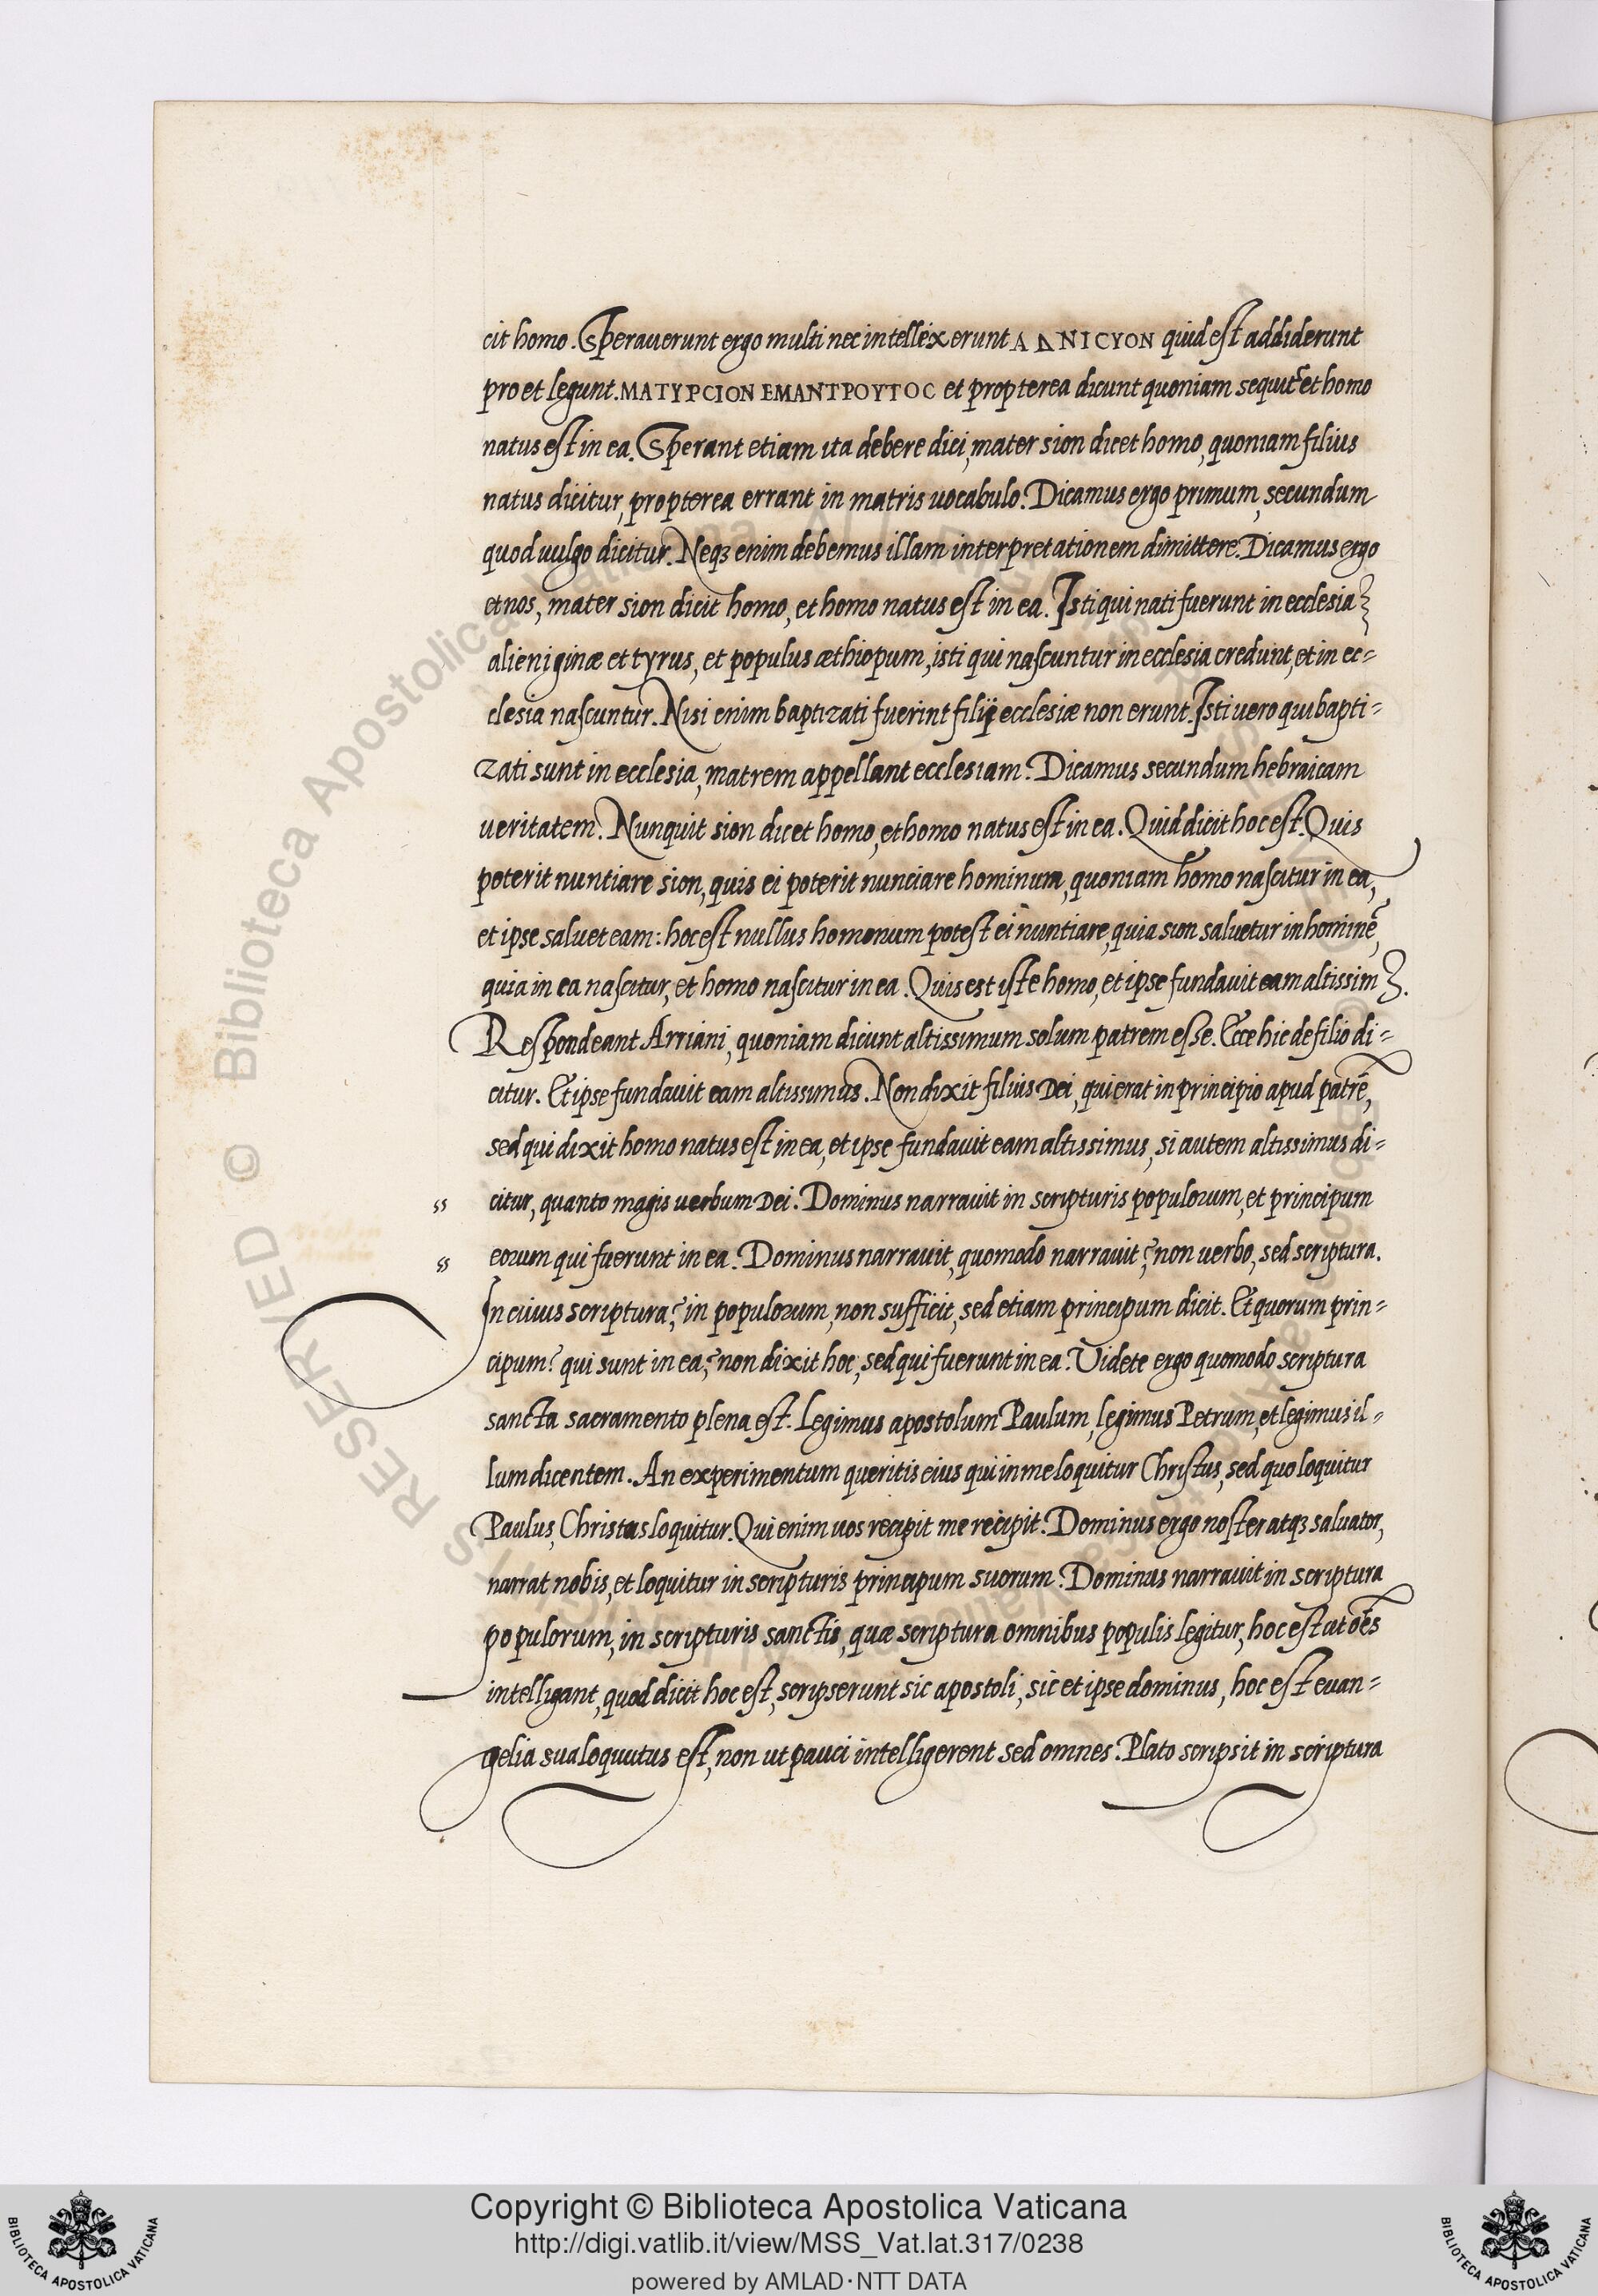 cit homo. Sperauerunt ergo multi nec intellexerunt A Δ NICYON quid est addiderunt
pro et legunt. MATYPCION EMANTPOYTOC et propterea dicunt quoniam sequit᷑ et homo
natus est in ea. Sperant etiam ita debere dici, mater sion dicet homo, quoniam filius
natus dicitur, propterea errant in matris uocabulo. Dicamus ergo primum, secundum
quod uulgo dicitur. Neqꝫ enim debemus illam interpretationem dimittere. Dicamus ergo
et nos, mater sion dicit homo, et homo natus est in ea. Isti qui nati fuerunt in ecclesia
alieniginæ et tyrus, et populus æthiopum, isti qui nascuntur in ecclesia credunt, et in ec=
clesia nascuntur. Nisi enim baptizati fuerint filij ecclesiæ non erunt. Isti uero qui bapti=
zati sunt in ecclesia, matrem appellant ecclesiam. Dicamus secundum hebraicam
ueritatem. Nunquit sion dicet homo, et homo natus est in ea. Quid dicit hoc est. Quis
poterit nuntiare sion, quis ei poterit nunciare hominum, quoniam homo nascitur in ea,
et ipse saluet eam: hoc est nullus homonum potest ei nuntiare, quia sion saluetur in hominē,
quia in ea nascitur, et homo nascitur in ea. Quis est iste homo, et ipse fundauit eam altissimꝫ.
Respondeant Arriani, quoniam dicunt altissimum solum patrem esse. Ecce hic de filio di=
citur. Et ipse fundauit eam altissimus. Non dixit filius Dei, qui erat in principio apud patrē,
sed qui dixit homo natus est in ea, et ipse fundauit eam altissimus, si autem altissimus di=
ss citur, quanto magis uerbum Dei. Dominus narrauit in scripturis populorum, et principum
ss eorum qui fuerunt in ea. Dominus narrauit, quomodo narrauit? non uerbo, sed scriptura.
In cuius scriptura? in populorum, non sufficit, sed etiam principum dicit. Et quorum prin=
cipum? qui sunt in ea? non dixit hoc, sed qui fuerunt in ea. Videte ergo quomodo scriptura
sancta sacramento plena est. Legimus apostolum Paulum, legimus Petrum, et legimus il=
lum dicentem. An experimentum queritis eius qui in me loquitur Christus, sed quo loquitur
Paulus, Christus loquitur. Qui enim uos recipit me recipit. Dominus ergo noster atqꝫ saluator,
narrat nobis, et loquitur in scripturis principum suorum. Dominus narrauit in scriptura
populorum, in scripturis sanctis, quæ scriptura omnibus populis legitur, hoc est ut oēs
intelligant, quod dicit hoc est, scripserunt sic apostoli, sic et ipse dominus, hoc est euan=
gelia sua loquutus est, non ut pauci intelligerent sed omnes. Plato scripsit in scriptura
Copyright © Biblioteca Apostolica Vaticana
http://digi.vatlib.it/view/MSS_Vat.lat.317/0238
powered by AMLAD·NTT DATA
BIBLIOTECA APOSTOLICA VATICANA
BIBLIOTECA APOSTOLICA VATICANA